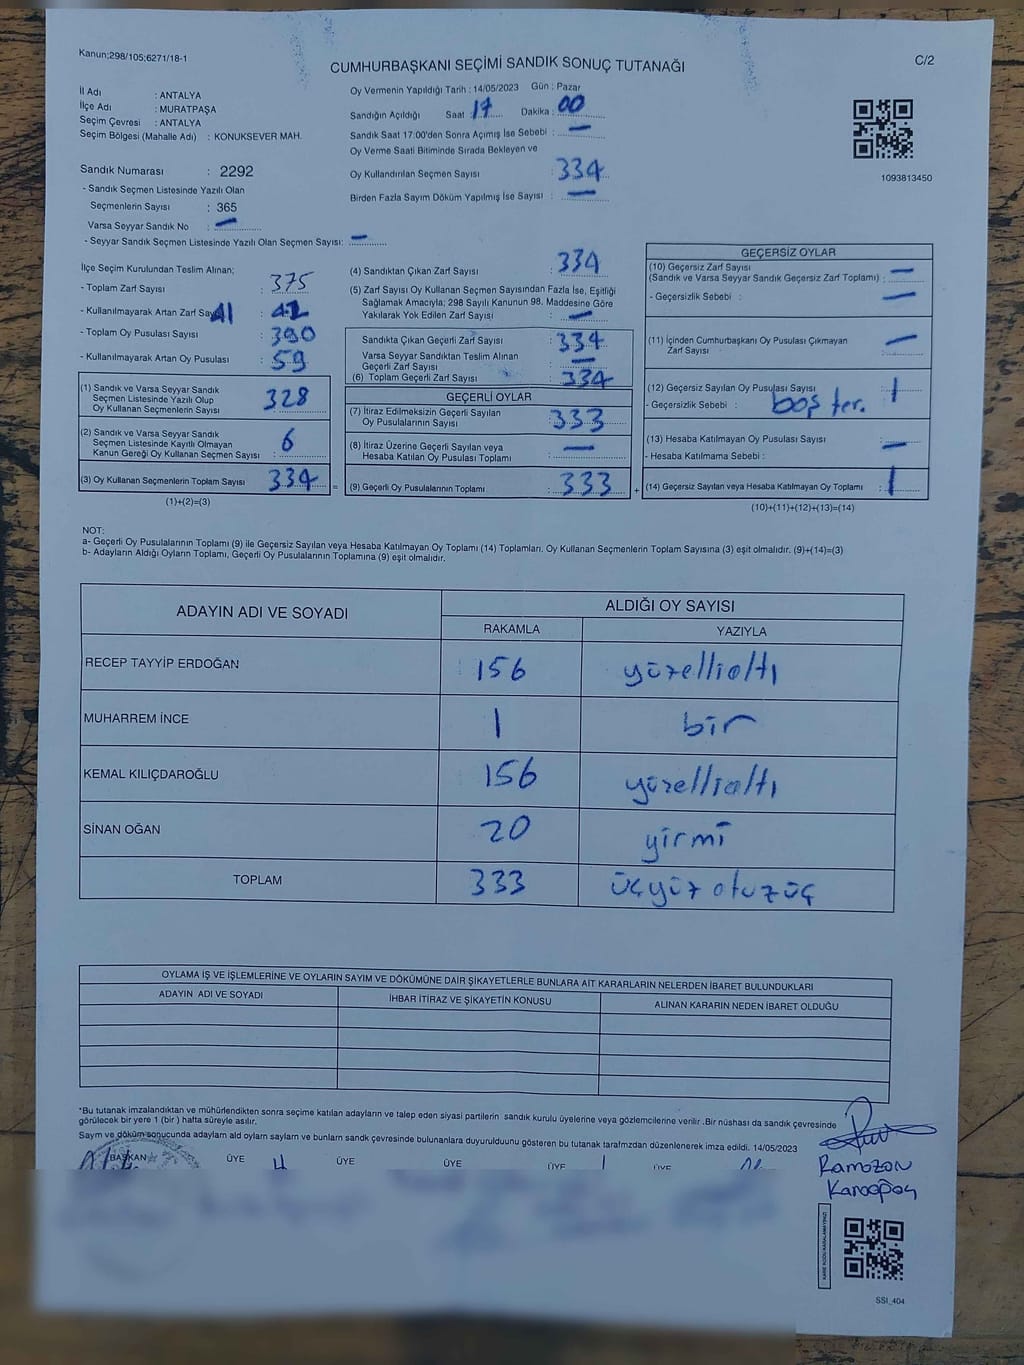 Kanun;298/105;6271/18-1
C/2
CUMHURBAŞKANI SEÇİMİ SANDIK SONUÇ TUTANAĞI
İl Adı : ANTALYA
İlçe Adı : MURATPAŞA
Seçim Çevresi : ANTALYA
Seçim Bölgesi (Mahalle Adı) : KONUKSEVER MAH.
Sandık Numarası : 2292
- Sandık Seçmen Listesinde Yazılı Olan
Seçmenlerin Sayısı : 365
Varsa Seyyar Sandık No : —
- Seyyar Sandık Seçmen Listesinde Yazılı Olan Seçmen Sayısı: —
Oy Vermenin Yapıldığı Tarih : 14/05/2023 Gün : Pazar
Sandığın Açıldığı Saat : 17 Dakika : 00
Sandık Saat 17:00'den Sonra Açımış İse Sebebi : —
Oy Verme Saati Bitiminde Sırada Bekleyen ve
Oy Kullandırılan Seçmen Sayısı : 334
Birden Fazla Sayım Döküm Yapılmış İse Sayısı : —
1093813450
İlçe Seçim Kurulundan Teslim Alınan;
- Toplam Zarf Sayısı : 375
- Kullanılmayarak Artan Zarf Sayısı 41 :
- Toplam Oy Pusulası Sayısı : 390
- Kullanılmayarak Artan Oy Pusulası : 59
(1) Sandık ve Varsa Seyyar Sandık
Seçmen Listesinde Yazılı Olup
Oy Kullanan Seçmenlerin Sayısı : 328
(2) Sandık ve Varsa Seyyar Sandık
Seçmen Listesinde Kayıtlı Olmayan
Kanun Gereği Oy Kullanan Seçmen Sayısı : 6
(3) Oy Kullanan Seçmenlerin Toplam Sayısı : 334
(1)+(2)=(3)
(4) Sandıktan Çıkan Zarf Sayısı : 334
(5) Zarf Sayısı Oy Kullanan Seçmen Sayısından Fazla İse, Eşitliği
Sağlamak Amacıyla; 298 Sayılı Kanunun 98. Maddesine Göre
Yakılarak Yok Edilen Zarf Sayısı : —
Sandıkta Çıkan Geçerli Zarf Sayısı : 334
Varsa Seyyar Sandıktan Teslim Alınan
Geçerli Zarf Sayısı : —
(6) Toplam Geçerli Zarf Sayısı : 334
GEÇERLİ OYLAR
(7) İtiraz Edilmeksizin Geçerli Sayılan
Oy Pusulalarının Sayısı : 333
(8) İtiraz Üzerine Geçerli Sayılan veya
Hesaba Katılan Oy Pusulası Toplamı : —
(9) Geçerli Oy Pusulalarının Toplamı : 333
GEÇERSİZ OYLAR
(10) Geçersiz Zarf Sayısı
(Sandık ve Varsa Seyyar Sandık Geçersiz Zarf Toplamı) : —
- Geçersizlik Sebebi : —
(11) İçinden Cumhurbaşkanı Oy Pusulası Çıkmayan
Zarf Sayısı : —
(12) Geçersiz Sayılan Oy Pusulası Sayısı : 1
- Geçersizlik Sebebi : boş ter.
(13) Hesaba Katılmayan Oy Pusulası Sayısı : —
- Hesaba Katılmama Sebebi :
(14) Geçersiz Sayılan veya Hesaba Katılmayan Oy Toplamı : 1
(10)+(11)+(12)+(13)=(14)
NOT:
a- Geçerli Oy Pusulalarının Toplamı (9) ile Geçersiz Sayılan veya Hesaba Katılmayan Oy Toplamı (14) Toplamları, Oy Kullanan Seçmenlerin Toplam Sayısına (3) eşit olmalıdır. (9)+(14)=(3)
b- Adayların Aldığı Oyların Toplamı, Geçerli Oy Pusulalarının Toplamına (9) eşit olmalıdır.
ADAYIN ADI VE SOYADI ALDIĞI OY SAYISI
RAKAMLA YAZIYLA
RECEP TAYYİP ERDOĞAN 156 yüzellialtı
MUHARREM İNCE 1 bir
KEMAL KILIÇDAROĞLU 156 yüzellialtı
SİNAN OĞAN 20 yirmi
TOPLAM 333 üçyüz otuzüç
OYLAMA İŞ VE İŞLEMLERİNE VE OYLARIN SAYIM VE DÖKÜMÜNE DAİR ŞİKAYETLERLE BUNLARA AİT KARARLARIN NELERDEN İBARET BULUNDUKLARI
ADAYIN ADI VE SOYADI İHBAR İTİRAZ VE ŞİKAYETİN KONUSU ALINAN KARARIN NEDEN İBARET OLDUĞU
*Bu tutanak imzalandıktan ve mühürlendikten sonra seçime katılan adayların ve talep eden siyasi partilerin sandık kurulu üyelerine veya gözlemcilerine verilir .Bir nüshası da sandık çevresinde
görülecek bir yere 1 (bir ) hafta süreyle asılır.
Sayım ve döküm sonucunda adayların ald oyların sayların ve bunların sandık çevresinde bulunanlara duyurulduunu gösteren bu tutanak tarafmzdan düzenlenerek imza edildi. 14/05/2023
BAŞKAN ÜYE ÜYE ÜYE ÜYE ÜYE
Ramazan
Karaopaç
SSI_404